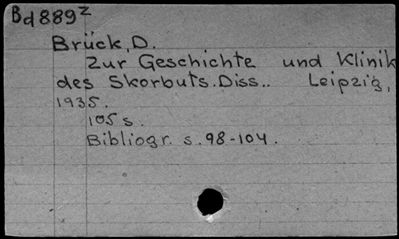 Bd889z
Brück, D.
Zur Geschichte und Klinik
des Skorbuts. Diss.. Leipzig,
1935.
105 s.
Bibliogr. s. 98-104.